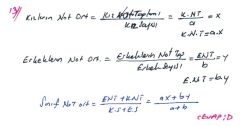 13)
Kızların Not Ort = Kız Not Toplamı / Kız Sayısı = K.NT / a = x
K.N.T = a.x
Erkeklerin Not Ort. = Erkeklerin Not Top / Erkek Sayısı = ENT / b = y
E.NT = b.y
Sınıf Not ort = ENT + KNT / K.S + E.S = ax + by / a + b
CEVAP: D